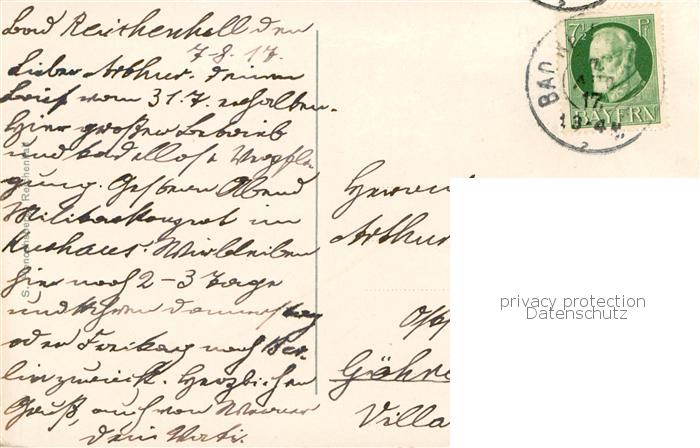 Bad Reichenhall den
7.8.17.
Lieber Arthur. Deinen
Brief vom 31.7. erhalten.
Hier großer Betrieb
und tadellose Verpfle-
gung. Gestern Abend
Militärkonzert im
Kurhaus. Wir bleiben
hier noch 2-3 Tage
und kehren Donnerstag
oder Freitag nach Ber-
lin zurück. Herzlichen
Gruß, auch von Werner
Dein Vati.
Herrn
Arthur
Göhre
Villa
7½ Pf
BAYERN
BAD
17
privacy protection
Datenschutz